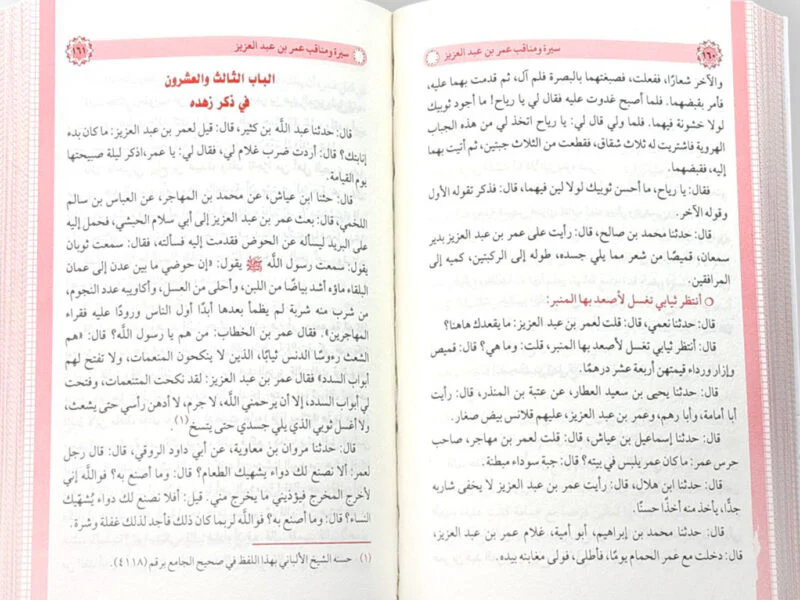 ١٦٠
سيرة ومناقب عمر بن عبد العزيز
والآخر شعارًا، ففعلت، فصبغتهما بالبصرة فلم آل، ثم قدمت بهما عليه،
فأمر بقبضهما. فلما أصبح غدوت عليه فقال لي يا رياح! ما أجود ثوبيك
لولا خشونة فيهما. فلما ولي قال لي: يا رياح اتخذ لي من هذه الجباب
الهروية فاشتريت له ثلاث شقاق، فقطعت من الثلاث جبتين، ثم أتيت بهما
إليه، فقبضهما.
فقال: يا رياح، ما أحسن ثوبيك لولا لين فيهما، قال: فذكر تقوله الأول
وقوله الآخر.
قال: حدثنا محمد بن صالح، قال: رأيت على عمر بن عبد العزيز بدير
سمعان، قميصًا من شعر مما يلي جسده، طوله إلى الركبتين، كميه إلى
المرافقين.
أنتظر ثيابي تغسل لأصعد بها المنبر:
قال: حدثنا نعمي، قال: قلت لعمر بن عبد العزيز: ما يقعدك هاهنا؟
قال: أنتظر ثيابي تغسل لأصعد بها المنبر، قلت: وما هي؟ قال: قميص
وإزار ورداء قيمتهن أربعة عشر درهمًا.
قال: حدثنا يحيى بن سعيد العطار، عن عتبة بن المنذر، قال: رأيت
أبا أمامة، وأبا رهم، وعمر بن عبد العزيز، عليهم قلانس بيض صغار.
قال: حدثنا إسماعيل بن عياش، قال: قلت لعمر بن مهاجر، صاحب
حرس عمر: ما كان عمر يلبس في بيته؟ قال: جبة سوداء مبطنة.
قال: حدثنا ابن هلال، قال: رأيت عمر بن عبد العزيز لا يخفى شاربه
جدًّا، يأخذ منه أخذًا حسنًا.
قال: حدثنا محمد بن إبراهيم، أبو أمية، غلام عمر بن عبد العزيز،
قال: دخلت مع عمر الحمام يومًا، فأطلى، فولى مغابنه بيده.
سيرة ومناقب عمر بن عبد العزيز
١٦١
الباب الثالث والعشرون
في ذكر زهده
قال: حدثنا عبد اللَّه بن كثير، قال: قيل لعمر بن عبد العزيز: ما كان بدء
إنابتك؟ قال: أردت ضرب غلام لي، فقال لي: يا عمر، اذكر ليلة صبيحتها
يوم القيامة.
قال: حثنا ابن عياش، عن محمد بن المهاجر، عن العباس بن سالم
اللخمي، قال: بعث عمر بن عبد العزيز إلى أبي سلام الحبشي، فحمل إليه
على البريد ليسأله عن الحوض فقدمت إليه فسألته، فقال: سمعت ثوبان
يقول: سمعت رسول اللَّه ﷺ يقول: «إن حوضي ما بين عدن إلى عمان
البلقاء ماؤه أشد بياضًا من اللبن، وأحلى من العسل، وأكاويبه عدد النجوم،
من شرب منه شربة لم يظمأ بعدها أبدًا أول الناس ورودًا عليه فقراء
المهاجرين». فقال عمر بن الخطاب: من هم يا رسول اللَّه؟ قال: «هم
الشعث رءوسًا الدنس ثيابًا، الذين لا ينكحون المنعمات، ولا تفتح لهم
أبواب السدد» فقال عمر بن عبد العزيز: لقد نكحت المتنعمات، وفتحت
لي أبواب السدد، إلا أن يرحمني اللَّه، لا جرم، لا أدهن رأسي حتى يشعث،
ولا أغسل ثوبي الذي يلي جسدي حتى يتسخ(١).
قال: حدثنا مروان بن معاوية، عن أبي داود الروقي، قال: قال رجل
لعمر: ألا نصنع لك دواء يشهيك الطعام؟ قال: وما أصنع به؟ فواللَّه إني
لأخرج المخرج فيؤذيني ما يخرج مني. قيل: أفلا نصنع لك دواء يُشهّيك
النساء؟ قال: وما أصنع به؟ فواللَّه لربما كان ذلك فأجد لذلك غفلة وشرة.
(١) حسنه الشيخ الألباني بهذا اللفظ في صحيح الجامع برقم (٤١١٨).